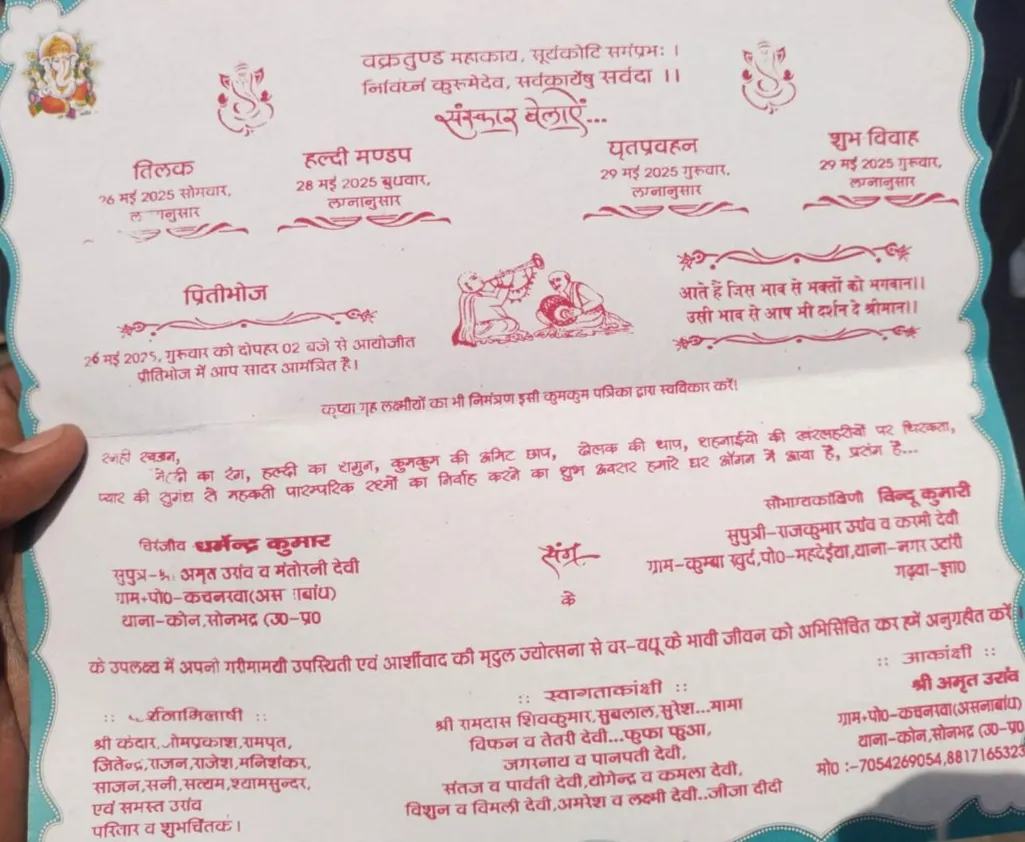 वक्रतुण्ड महाकाय, सूर्यकोटि समप्रभः ।
निर्विघ्नं कुरूमेदेव, सर्वकार्येषु सर्वदा ।।
संस्कार बेलाऐं...
तिलक
26 मई 2025 सोमवार,
लग्नानुसार
हल्दी मण्डप
28 मई 2025 बुधवार,
लग्नानुसार
घृतप्रवहन
29 मई 2025 गुरूवार,
लग्नानुसार
शुभ विवाह
29 मई 2025 गुरूवार,
लग्नानुसार
प्रितीभोज
26 मई 2025, गुरूवार को दोपहर 02 बजे से आयोजीत
प्रीतिभोज में आप सादर आमंत्रित है।
आते हैं जिस भाव से भक्तों को भगवान।।
उसी भाव से आप भी दर्शन दे श्रीमान।।
कृप्या गृह लक्ष्मीयों का भी निमंत्रण इसी कुमकुम पत्रिका द्वारा स्वविकार करें!
स्नेही स्वजन,
मेंहदी का रंग, हल्दी का शगुन, कुमकुम की अमिट छाप, ढोलक की थाप, शहनाईयो की स्वरलहरीयों पर थिरकता,
प्यार की सुगंध से महकती पारम्परिक रस्मों का निर्वाह करने का शुभ अवसार हमारे घर आँगन में आया है, प्रसंग है...
चिरंजीव धर्मेन्द्र कुमार
सुपुत्र-श्री अमृत उरांव व मंतोरनी देवी
ग्राम+पो0-कचनरवा(असनाबांध)
थाना-कोन,सोनभद्र (उ0-प्र0
संग
के
सौभाग्यकांक्षिणी विन्दू कुमारी
सुपुत्री-राजकुमार उरांव व करमी देवी
ग्राम-कुम्बा खुर्द,पो0-महदेईया,थाना-नगर उटांरी
गढ़वा-झा0
के उपलक्ष्य में अपनी गरीमामयी उपस्थिती एवं आर्शीवाद की मृदुल ज्योत्सना से वर-वधू के भावी जीवन को अभिसिंचित कर हमें अनुग्रहीत करें।
:: दर्शनाभिलाषी ::
श्री केदार,ओमप्रकाश,रामपृत,
जितेन्द्र,राजन,राजेश,मनिशंकर,
साजन,सनी,सत्यम,श्यामसुन्दर,
एवं समस्त उरांव
परिवार व शुभचिंतक।
:: स्वागताकांक्षी ::
श्री रामदास शिवकुमार,सुबलाल,सुरेश...मामा
विफन व तेतरी देवी...फुफा फुआ,
जगरनाथ व पानपती देवी,
संतज व पार्वती देवी,योगेन्द्र व कमला देवी,
विशुन व विमली देवी,अमरेश व लक्ष्मी देवी..जीजा दीदी
:: आकांक्षी ::
श्री अमृत उरांव
ग्राम+पो0-कचनरवा(असनाबांध)
थाना-कोन,सोनभद्र (उ0-प्र0
मो0 :-7054269054,8817165323